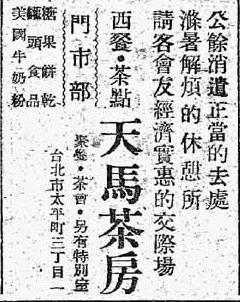 公餘消遣正當的去處
滌暑解煩的休憩所
請客會友經濟實惠的交際場
西餐・茶點
天馬茶房
聚餐・茶會・另有特別室
台北市太平町三丁目一
門市部
糖果餅乾
罐頭食品
美國牛奶粉